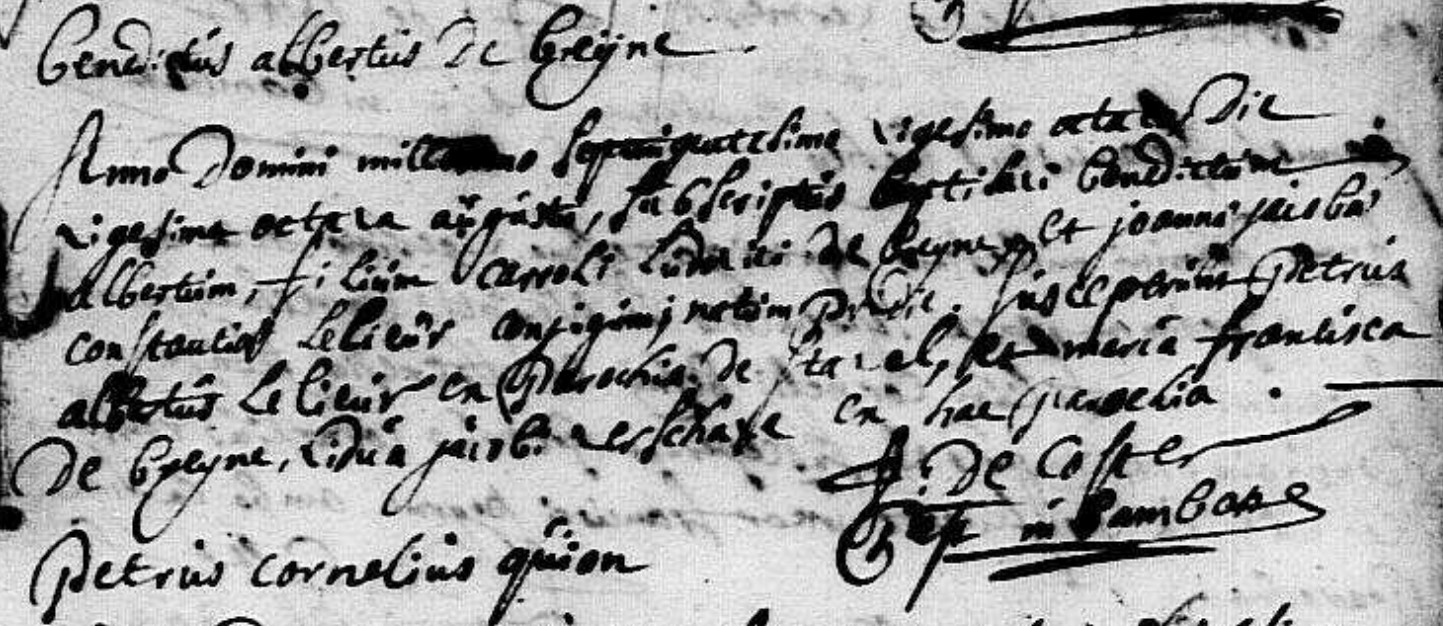 benedictus albertus De breyne
Anno Domini millesimo septingentesimo vigesimo octavo Die
vigesima octava augusti, subscriptus baptisavi benedictum
albertum, filium Caroli Ludovici de breyne, et joanna jacoba
constantia Lelieur conjugum, natum pridie. susceperunt petrus
albertus Lelieur en parochia de stavel, et maria francisca
De breyne, vidua jacobi verschave en hac parochia.
De Coster
in bambeke
petrus cornelius quion